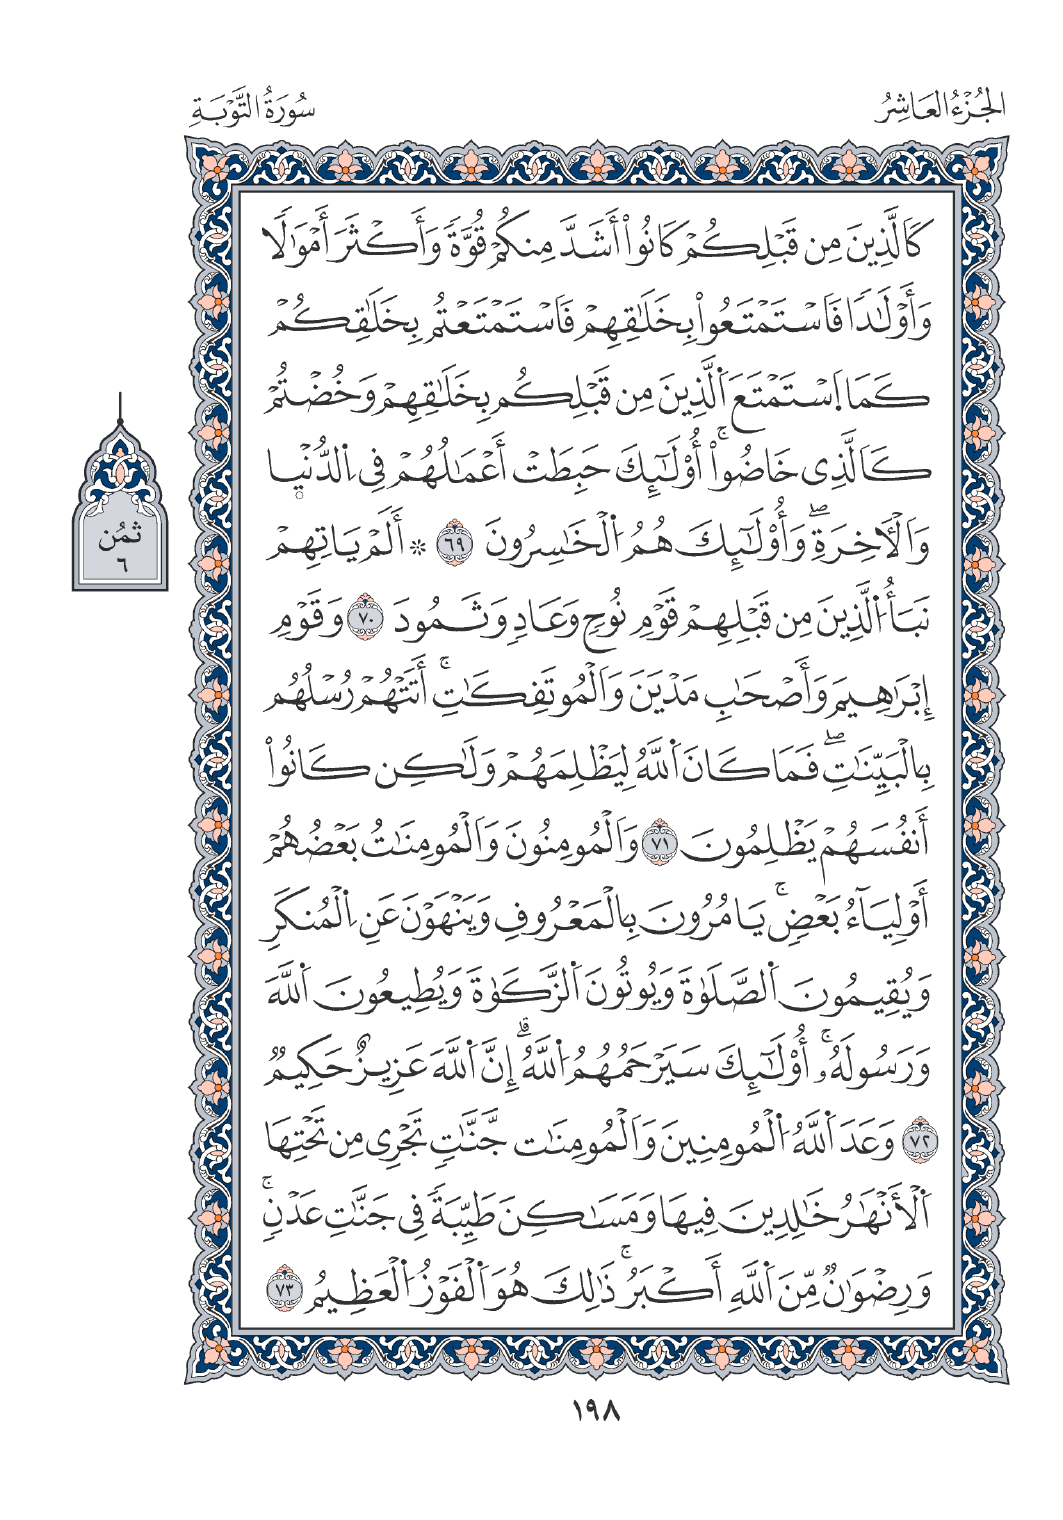 الجُزْءُ العَاشِرُ
سُورَةُ التَّوْبَةِ
كَالَّذِينَ مِن قَبْلِكُمْ كَانُوا۟ أَشَدَّ مِنكُمْ قُوَّةً وَأَكْثَرَ أَمْوَٰلًا
وَأَوْلَٰدًا فَاسْتَمْتَعُوا۟ بِخَلَٰقِهِمْ فَاسْتَمْتَعْتُم بِخَلَٰقِكُمْ
كَمَا اَسْتَمْتَعَ اَلَّذِينَ مِن قَبْلِكُم بِخَلَٰقِهِمْ وَخُضْتُمْ
كَالَّذِى خَاضُوا۟ۚ أُوْلَٰٓئِكَ حَبِطَتْ أَعْمَٰلُهُمْ فِى اِلدُّنْيٜا
وَالْأٓخِرَةِۖ وَأُوْلَٰٓئِكَ هُمُ اُلْخَٰسِرُونَ ٦٩ ۞ أَلَمْ يَاتِهِمْ
نَبَأُ اُلَّذِينَ مِن قَبْلِهِمْ قَوْمِ نُوحٍ وَعَادٍ وَثَمُودَ ٧٠ وَقَوْمِ
إِبْرَٰهِيمَ وَأَصْحَٰبِ مَدْيَنَ وَالْمُوتَفِكَٰتِۚ أَتَتْهُمْ رُسْلُهُم
بِالْبَيِّنَٰتِۖ فَمَا كَانَ اَللَّهُ لِيَظْلِمَهُمْ وَلَٰكِن كَانُوا۟
أَنفُسَهُمْ يَظْلِمُونَ ٧١ وَالْمُومِنُونَ وَالْمُومِنَٰتُ بَعْضُهُمْ
أَوْلِيَآءُ بَعْضٍۚ يَامُرُونَ بِالْمَعْرُوفِ وَيَنْهَوْنَ عَنِ اِلْمُنكَرِ
وَيُقِيمُونَ اَلصَّلَوٰةَ وَيُوتُونَ اَلزَّكَوٰةَ وَيُطِيعُونَ اَللَّهَ
وَرَسُولَهُۥۚ أُوْلَٰٓئِكَ سَيَرْحَمُهُمُ اُللَّهُۗ إِنَّ اَللَّهَ عَزِيزٌ حَكِيمٌ
٧٢ وَعَدَ اَللَّهُ اُلْمُومِنِينَ وَالْمُومِنَٰت جَّنَّٰتٍ تَجْرِى مِن تَحْتِهَا
اَلْأَنْهَٰرُ خَٰلِدِينَ فِيهَا وَمَسَٰكِنَ طَيِّبَةً فِى جَنَّٰتِ عَدْنٍۚ
وَرِضْوَٰنٌ مِّنَ اَللَّهِ أَكْبَرُۚ ذَٰلِكَ هُوَ اَلْفَوْزُ اُلْعَظِيمُ ٧٣
ثُمُن
٦
١٩٨